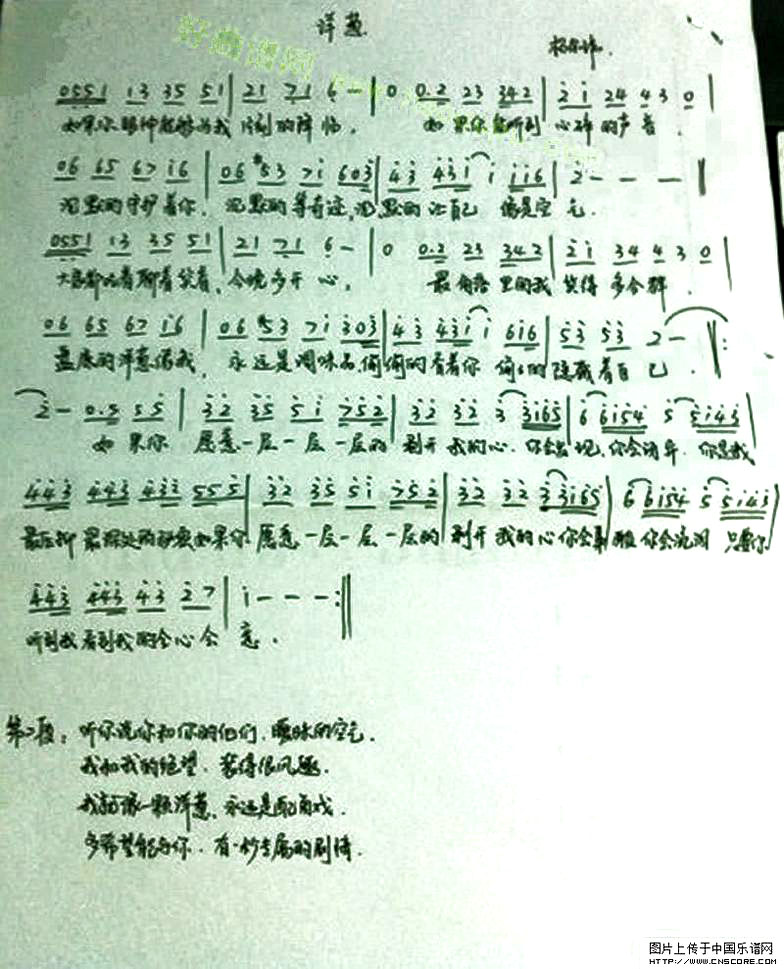 洋葱
杨宗纬.
好曲谱网
0551 13 35 51 | 21 71 6 - | 0 0.2 23 342 | 2̇ i̇ 24 4 3 0 |
如果你眼神能够为我 片刻的降临. 如果你能听到 心碎的声音.
06 65 67 i̇6 | 06 #53 7i̇ 603̇ | 4̇3̇ 4̇3̇i̇ i̇ i̇i̇6 | 2̇ - - - |
沉默的守护着你. 沉默的等奇迹, 沉默的让自己 像是空气.
0551 13 35 51 | 21 71 6 - | 0 0.2 23 342 | 2̇i̇ 34 4 3 0 |
大家都吃着聊着笑着, 今晚多开心. 最角落里的我 笑得多合群.
06 65 67 i̇6 | 06 #53 7i̇ 3̇03̇ | 4̇3̇ 4̇3̇i̇ i̇ 6i̇6 | 5̇3̇ 5̇3̇ 2 - :
盘底的洋葱像我, 永远是调味品, 偷偷的看着你 偷偷的隐藏着自己.
2̇ - 0.5 55̇ | 3̇2̇ 3̇5̇ 5̇i̇ 7̇5̇2̇ | 3̇2̇ 3̇2̇ 3̇ 3̇i̇65 | 6 6i̇54 5 5i̇4̇3̇ |
如果你 愿意一层一层一层的 剥开我的心. 你会发现, 你会讶异. 你是我
4̇4̇3̇ 4̇4̇3̇ 4̇3̇2̇ 555̇ | 3̇2̇ 3̇5̇ 5̇i̇ 7̇5̇2̇ | 3̇2̇ 3̇2̇ 3̇ 3̇i̇65 | 6 6i̇54 5 5i̇4̇3̇
最压抑 最深处的秘密如果你 愿意一层一层一层的 剥开我的心你会鼻酸 你会流泪 只要你
4̇4̇3̇ 4̇4̇3̇ 4̇3̇ 2̇7 | i̇ - - - :||
听到我看到我的全心全意.
第二段: 听你说你和你的他们. 暧昧的空气.
我和我的绝望. 装得很风趣.
我就像一颗洋葱. 永远是配角戏.
多希望能与你. 有一秒专属的剧情.
图片上传于中国乐谱网
HTTP://WWW.CNSCORE.COM